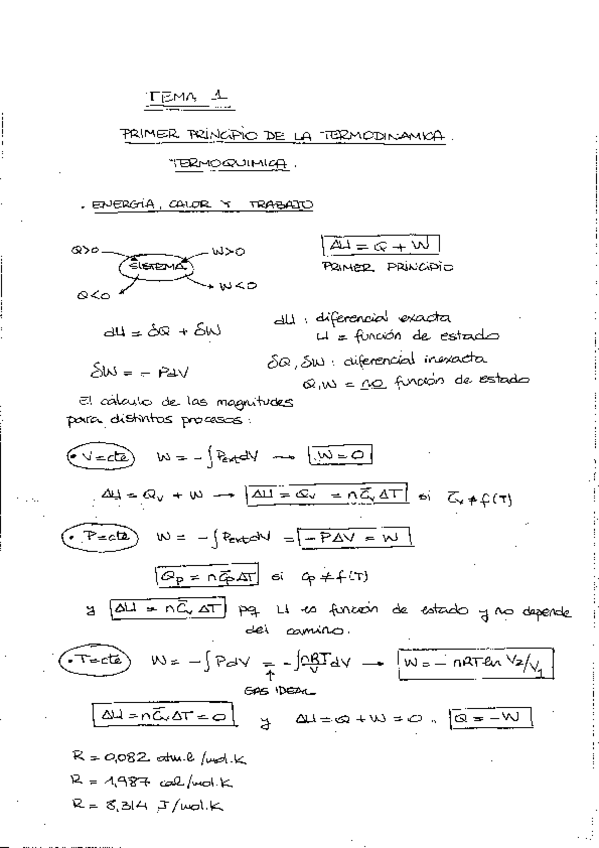 TEMA 1
PRIMER PRINCIPIO DE LA TERMODINAMICA.
TERMOQUIMICA.
. ENERGÍA, CALOR Y TRABAJO
Q>0 W>0 ΔU = Q + W
SISTEMA PRIMER PRINCIPIO
Q<0 W<0
dU = δQ + δW dU : diferencial exacta
U = función de estado
δW = - PdV δQ, δW : diferencial inexacta
Q, W = no función de estado
El cálculo de las magnitudes
para distintos procesos:
• V=cte W = -∫PextdV → W=0
ΔU = Qv + W → ΔU = Qv = nC̅vΔT si C̅v ≠ f(T)
• P=cte W = -∫PextdV = -PΔV = W
Qp = nC̅pΔT si Cp ≠ f(T)
y ΔU = nC̅vΔT pq U es función de estado y no depende
del camino.
• T=cte W = -∫PdV = -∫nRT/V dV → W = - nRT ln V2/V1
↑
GAS IDEAL
ΔU = nC̅vΔT = 0 y ΔU = Q + W = 0 .. Q = -W
R = 0,082 atm.l/mol.K
R = 1,987 cal/mol.K
R = 8,314 J/mol.K